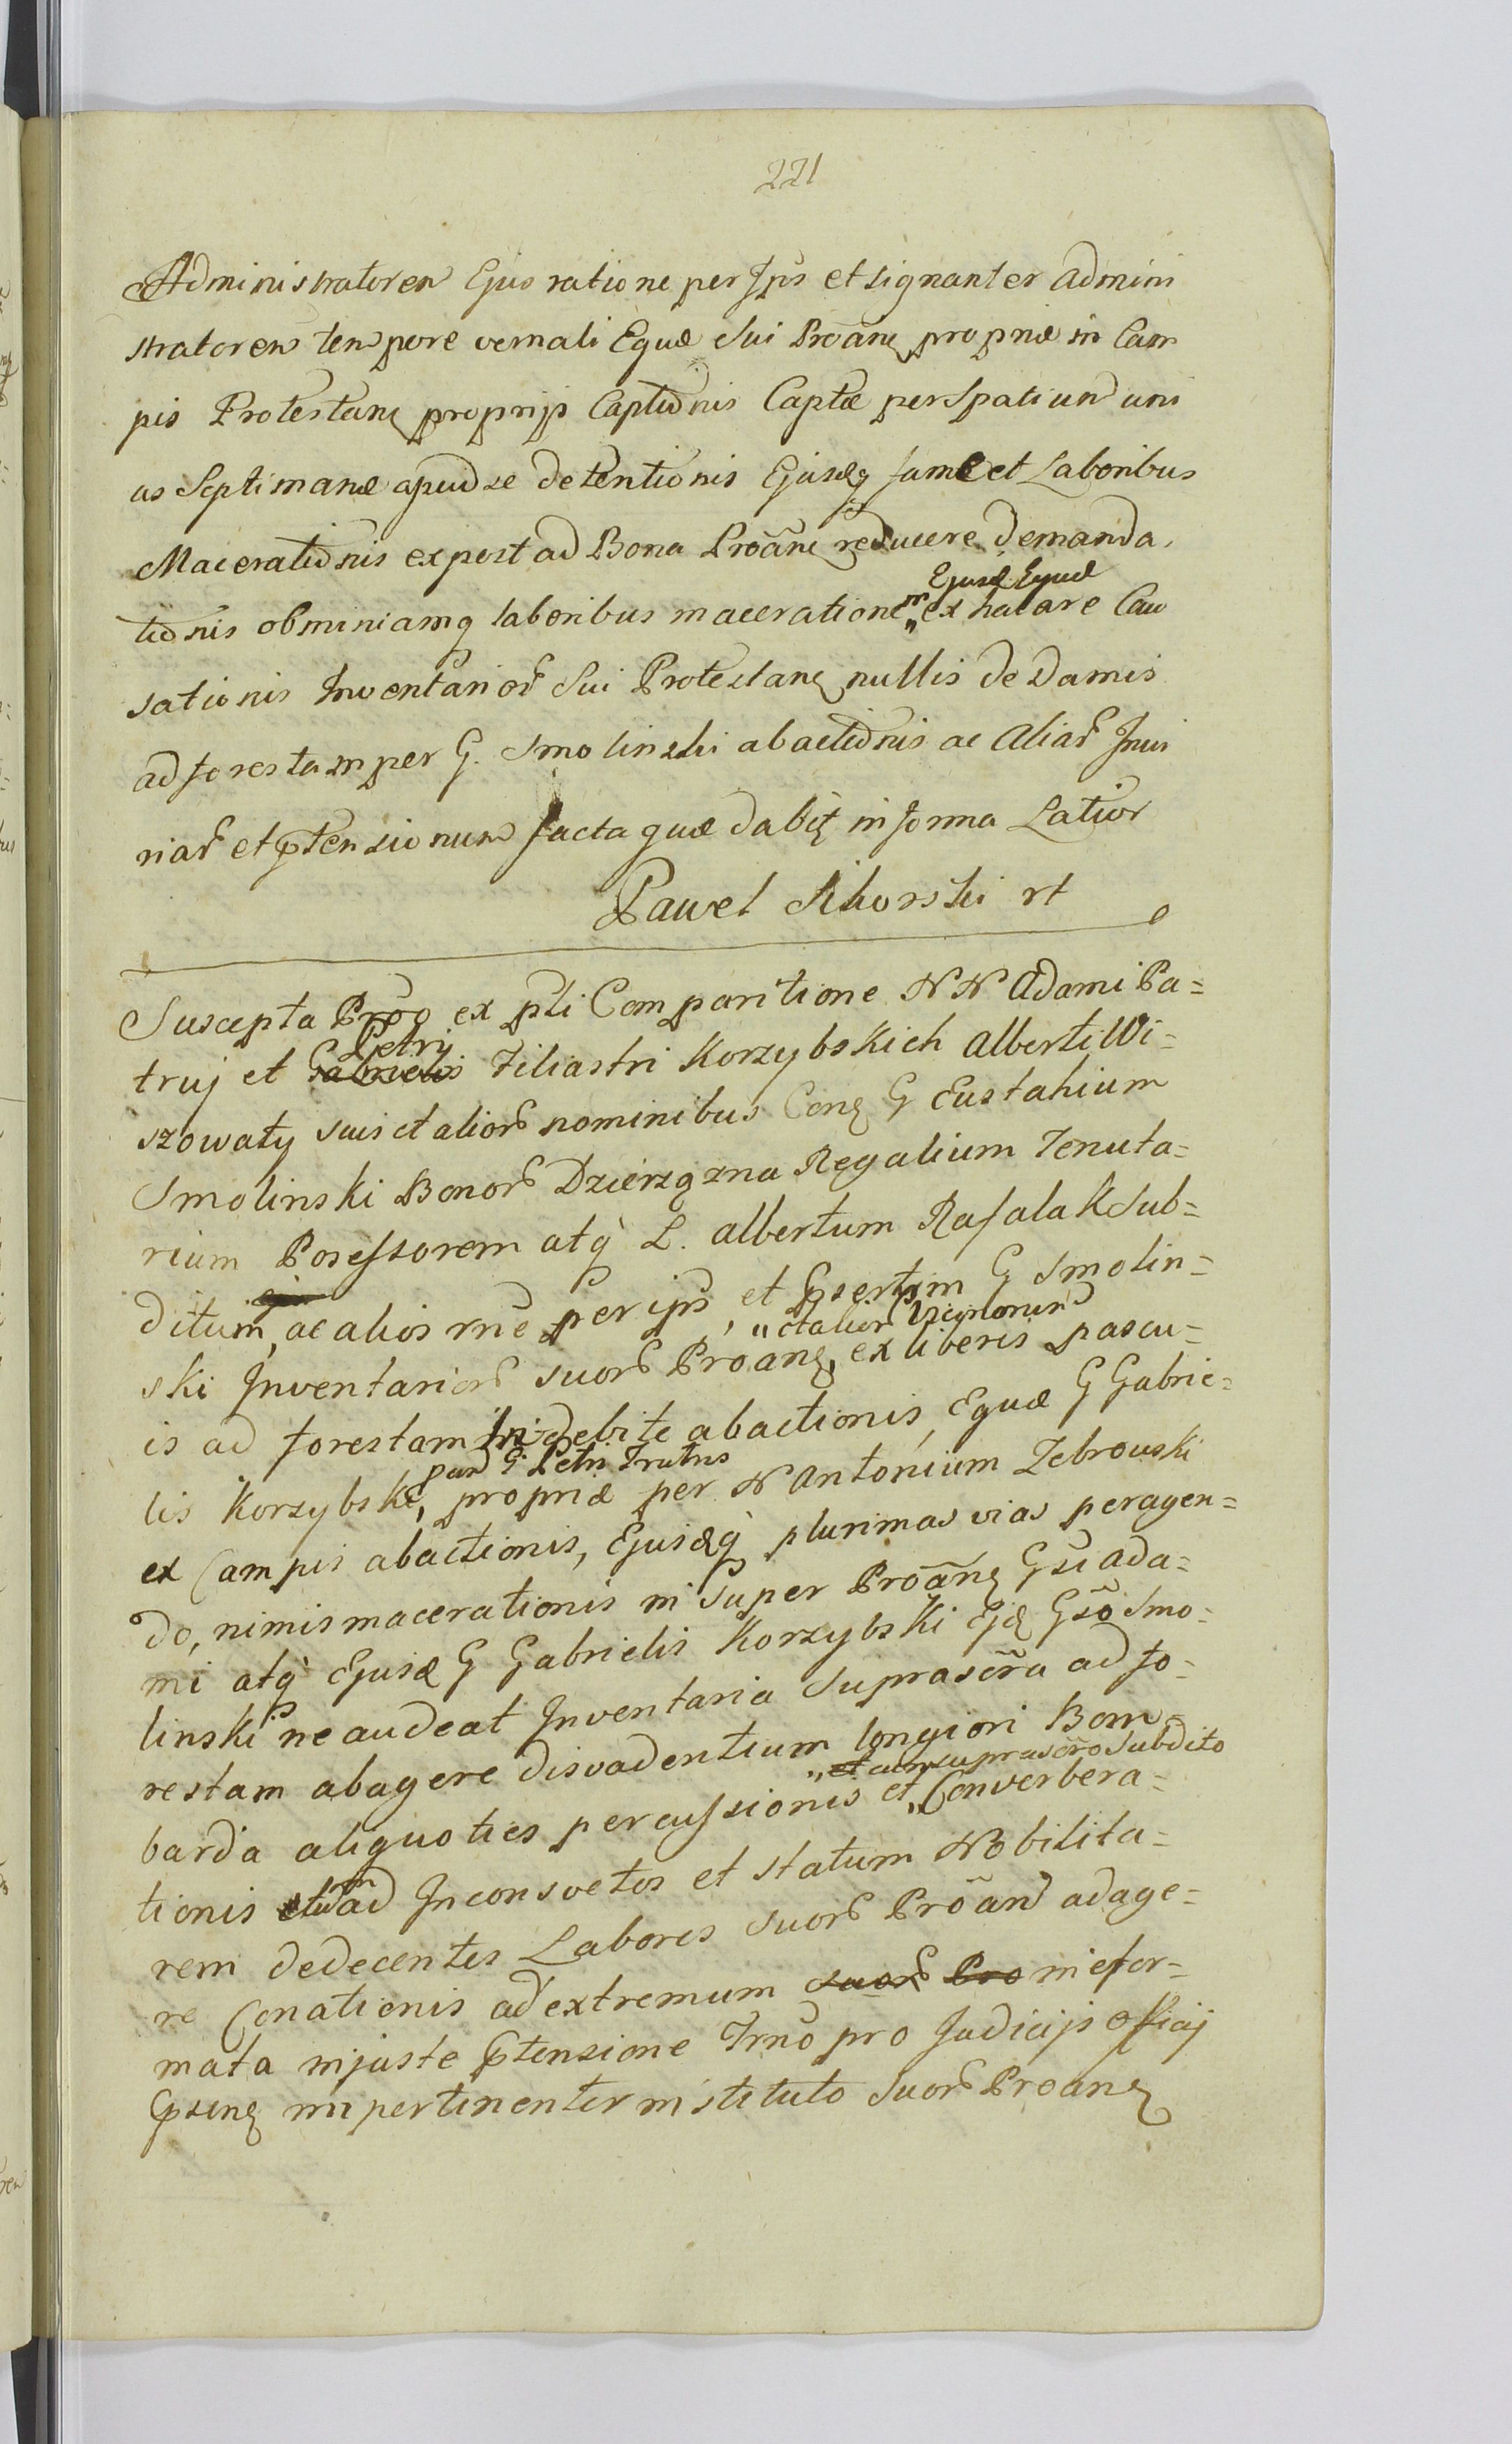 221
Administratorem Ejus ratione per Ips et signanter admini
stratorem tempore vernali Equæ Sui Proãnę propriæ in Cam
pis Protestanę proprijs Captionis Captæ per Spatium uni
us Septimanæ apud se detentionis Ejusdq fame et Laboribus
Macerationis expost ad Bona Proãnę reducere demanda
tionis ob miniamq laboribus macerationem
Ejusd Equæ
„ex halare Cau
sationis Inventarior Sui Protestanę nullis de Damis
ad forestam per G. Smolinski abactionis ac Aliar Inju
riar et ptensionum facta quæ dabit in forma Latior
Pawel Sikorski rt
Suscepta Prõõ ex pti Comparitione NN Adami Pa=
truj et Gabrielis
Petrj
Filiastri Korzybskich Alberti Wi=
szowaty suis et alior nominibus Conę G Eustahium
Smolinski Bonor Dzierzązna Regalium Tenuta=
rium Posessorem atq L. Albertum Rafalak Sub=
ditum, ac alios rñe per ips, et Gsertim G Smolin=
ski Inventarior suor Proanę,
„et alior Vicinorum
ex liberis pascu=
is ad forestam Indebite abactionis, Equæ G Gabrie=
lis Korzybski,
G Petri Fratris
propriæ per N Antonium Zebrowski
ex Campis abactionis, Ejusdq plurimas vias peragen=
do, nimis macerationis in Super Proãnę Gsi Ada=
mi atq Ejusd G Gabrielis Korzybski Ejd Gsõ Smo=
linski ne audeat Inventaria Suprascr̃a ad fo=
restam abagere disvadentium longiori Bom=
barda aliquoties percussionis et
„et cum suprascr̃o Subdito
„Converbera=
tionis ad Inconsvetos et statum Nobilita=
rem dedecentes Labores suor Prõan adage=
re Conationis ad extremum suor Pro in efor=
mata injuste ptensione Trno pro Judicijs officij
Gsenę impertinenter instituto Suor Proanę